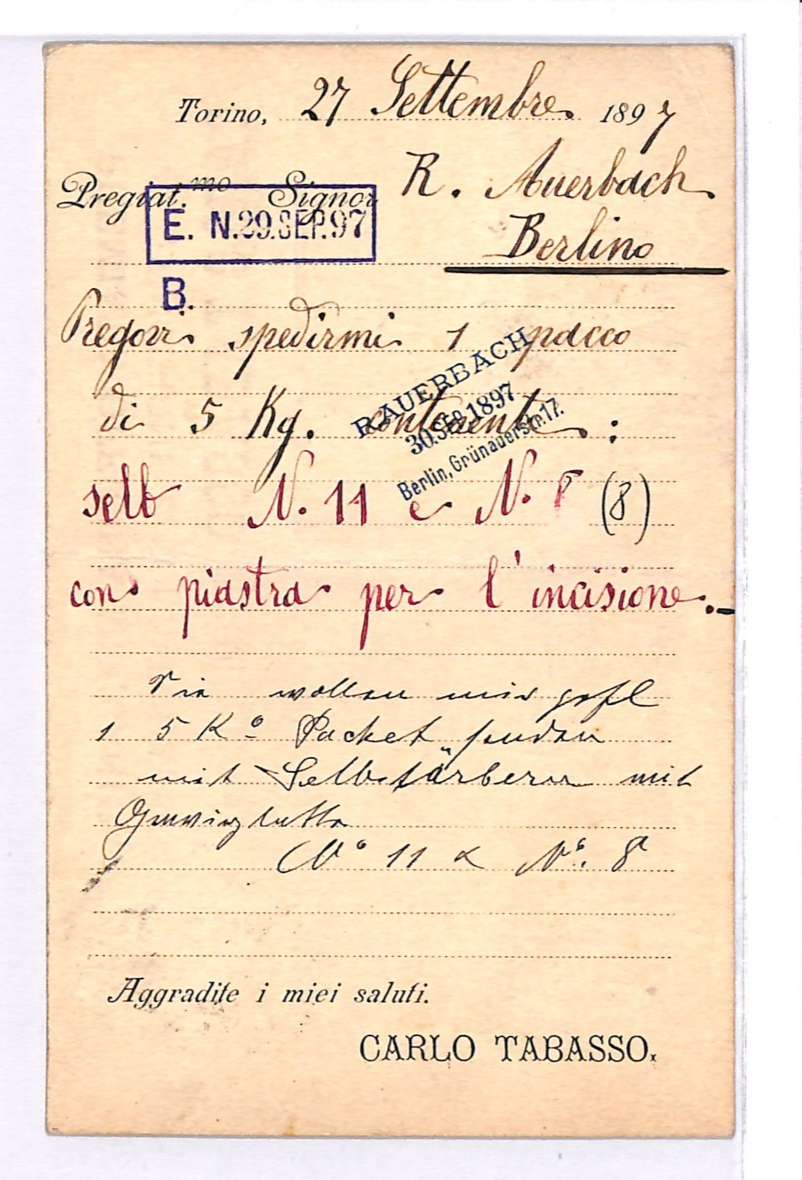 Torino, 27 Settembre 1897
Pregiat.mo Signor R. Auerbach
E. N. 29. SEP. 97
Berlino
B.
Pregovi spedirmi 1 pacco
R AUERBACH
di 5 Kg. contenente :
30. SEP. 1897
Berlin, Grünauerstr. 17.
selb N. 11 e N. 8 (8)
con piastra per l'incisione.
Sie wollen mir gefl
1 5 Ko Packet senden
mit Selbstfärberer mit
Gravirplatte
No 11 & No. 8
Aggradite i miei saluti.
CARLO TABASSO.